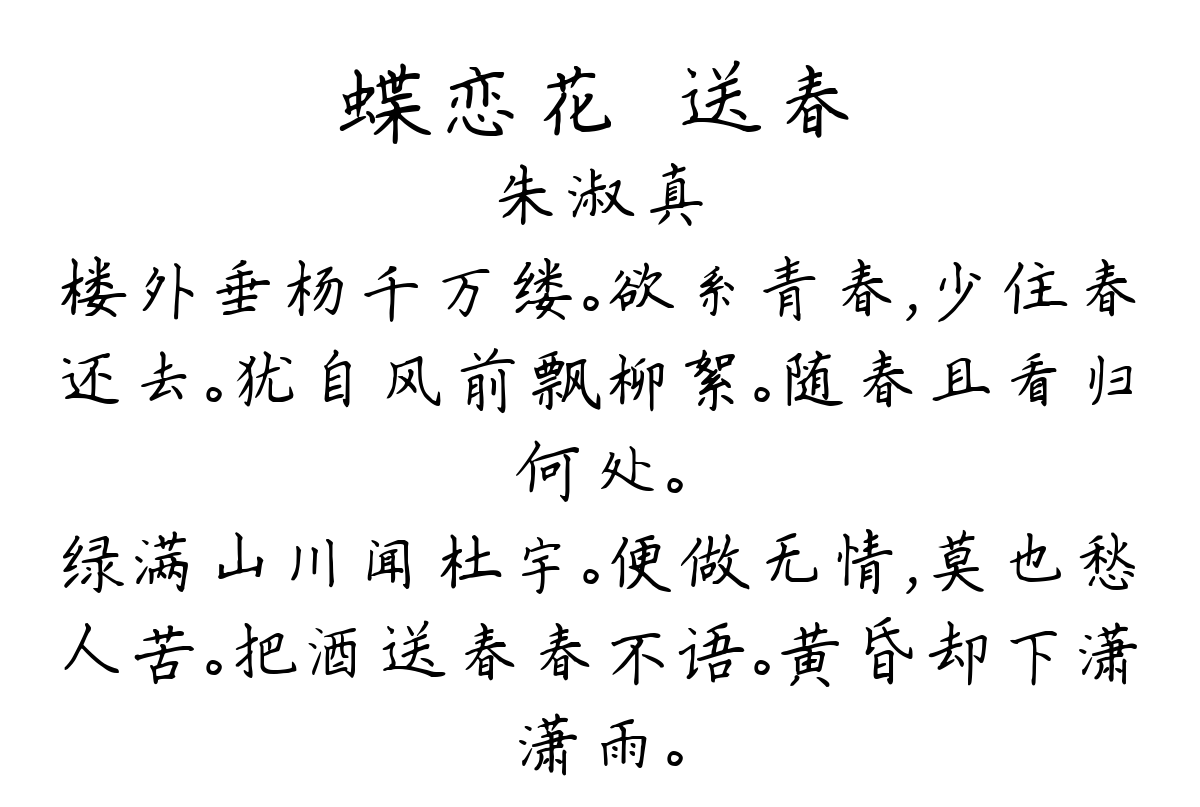 蝶恋花 送春
朱淑真
楼外垂杨千万缕。欲系青春,少住春
还去。犹自风前飘柳絮。随春且看归
何处。
绿满山川闻杜宇。便做无情,莫也愁
人苦。把酒送春春不语。黄昏却下潇
潇雨。